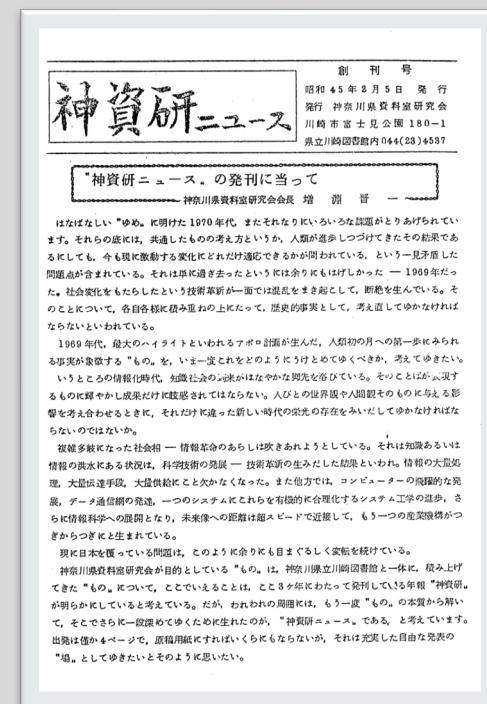 神資研ニュース
創刊号
昭和45年2月5日 発行
発行 神奈川県資料室研究会
川崎市富士見公園180-1
県立川崎図書館内044(23)4537
"神資研ニュース〟の発刊に当って
神奈川県資料室研究会会長 増淵晋一
はなばなしい"ゆめ〟に明けた1970年代、またそれなりにいろいろな課題がとりあげられてい
ます。それらの底には、共通したものの考え方というか、人類が進歩しつづけてきたその結果であ
るにしても、今も現に激動する変化にどれだけ適応できるかが問われている、という一見矛盾した
問題点が含まれている。それは単に過ぎ去ったというには余りにもはげしかった ― 1969年だっ
た。社会変化をもたらしたという技術革新が一面では混乱をまき起こして、断絶を生んでいる。そ
のことについて、各自各様に積み重ねの上にたって、歴史的事実として、考え直してゆかなければ
ならないといわれている。
1969年代、最大のハイライトといわれるアポロ計画が生んだ、人類初の月への第一歩にみられ
る事実が象徴する"もの〟を、いま一度これをどのようにうけとめてゆくべきか、考えてゆきたい。
いうところの情報化時代、知識社会の到来がはなやかな脚光を浴びている。そのことばが表現す
るものに輝やかし成果だけに眩惑されてはならない。人びとの世界観や人間観そのものに与える影
響を考え合わせるときに、それだけに違った新しい時代の栄光の存在をみいだしてゆかなければな
らないのではないか。
複雑多岐になった社会相 ― 情報革命のあらしは吹きあれようとしている。それは知識あるいは
情報の洪水にある状況は、科学技術の発展 ― 技術革新の生みだした結果といわれ。情報の大量処
理、大量伝達手段、大量供給にこと欠かなくなった。また他方では、コンピューターの飛躍的な発
展、データ通信網の発達、一つのシステムにこれらを有機的に合理化するシステム工学の進歩、さ
らに情報科学への展開となり、未来像への距離は超スピードで近接して、もう一つの産業機構がつ
ぎからつぎにと生まれている。
現に日本を覆っている問題は、このように余りにも目まぐるしく変転を続けている。
神奈川県資料室研究会が目的としている"もの〟は、神奈川県立川崎図書館と一体に、積み上げ
てきた"もの〟について、ここでいえることは、ここ3ヶ年にわたって発刊している年報"神資研〟
が明らかにしていると考えている。だが、われわれの周囲には、もう一度"もの〟の本質から解い
て、そこでさらに一段深めてゆくために生れたのが、"神資研ニュース〟である、と考えています。
出発は僅か4ページで、原稿用紙にすればいくらにもならないが、それは充実した自由な発表の
"場〟としてゆきたいとそのように思いたい。